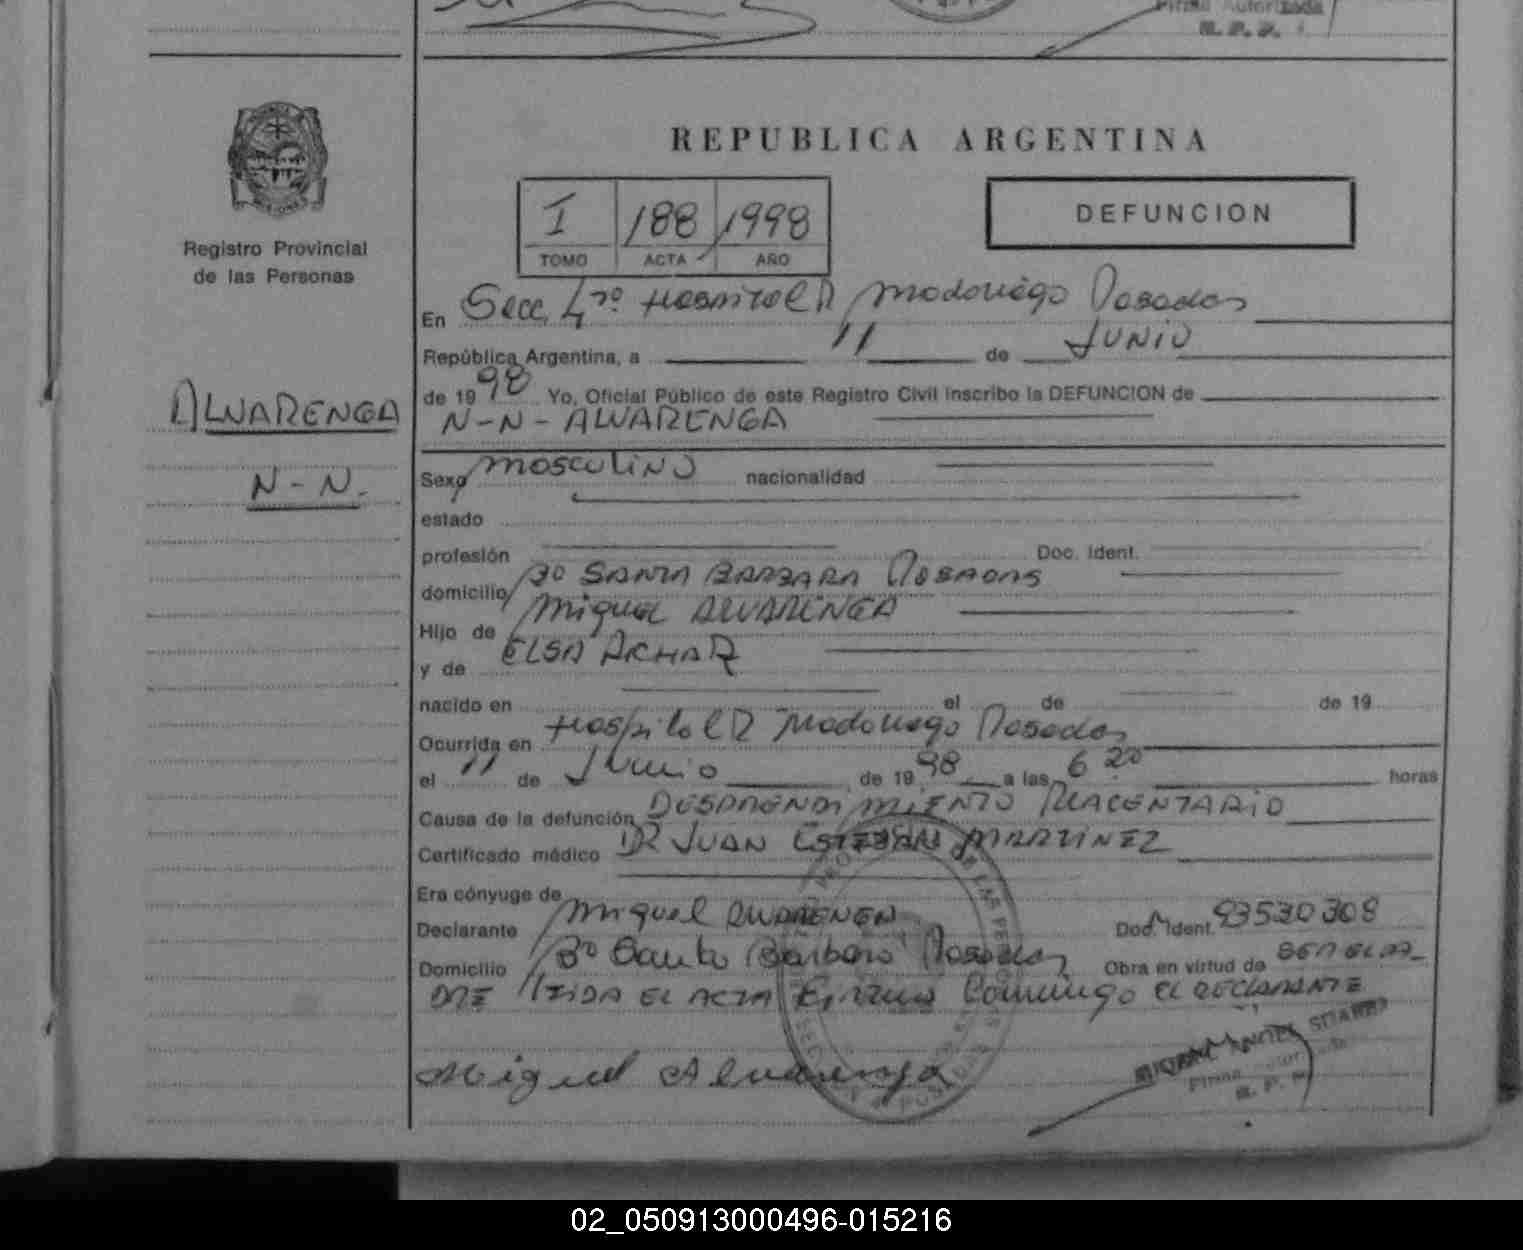 Firma Autorizada
R. P. P.
Registro Provincial
de las Personas
ALVARENGA
N-N.
REPUBLICA ARGENTINA
I 188 1998
TOMO ACTA AÑO
DEFUNCION
En Secc. 4ta Hospital R Madariaga Posadas
República Argentina, a 11 de JUNIO
de 1998 Yo, Oficial Público de este Registro Civil inscribo la DEFUNCION de
N-N- ALVARENGA
Sexo masculino nacionalidad
estado
profesión Doc. Ident.
domicilio Bo SANTA BARBARA POSADAS
Hijo de Miguel ALVARENGA
y de ELSA
nacido en el de de 19
Ocurrida en Hospital R Madariaga Posadas
el 11 de Junio de 1998 a las 6 20 horas
Causa de la defunción DESPRENDIMIENTO PLACENTARIO
Certificado médico DR JUAN ESTEBAN MARTINEZ
Era cónyuge de
Declarante Miguel ALVARENGA Doc. Ident. 93530308
Domicilio Bo Santa Barbara Posadas Obra en virtud de SER EL PA-
DRE LEIDA EL ACTA Firma Conmigo EL DECLARANTE
Miguel Alvarenga
MIGUEL ANGEL SUAREZ
Firma Autorizada
R. P. P.
02_050913000496-015216